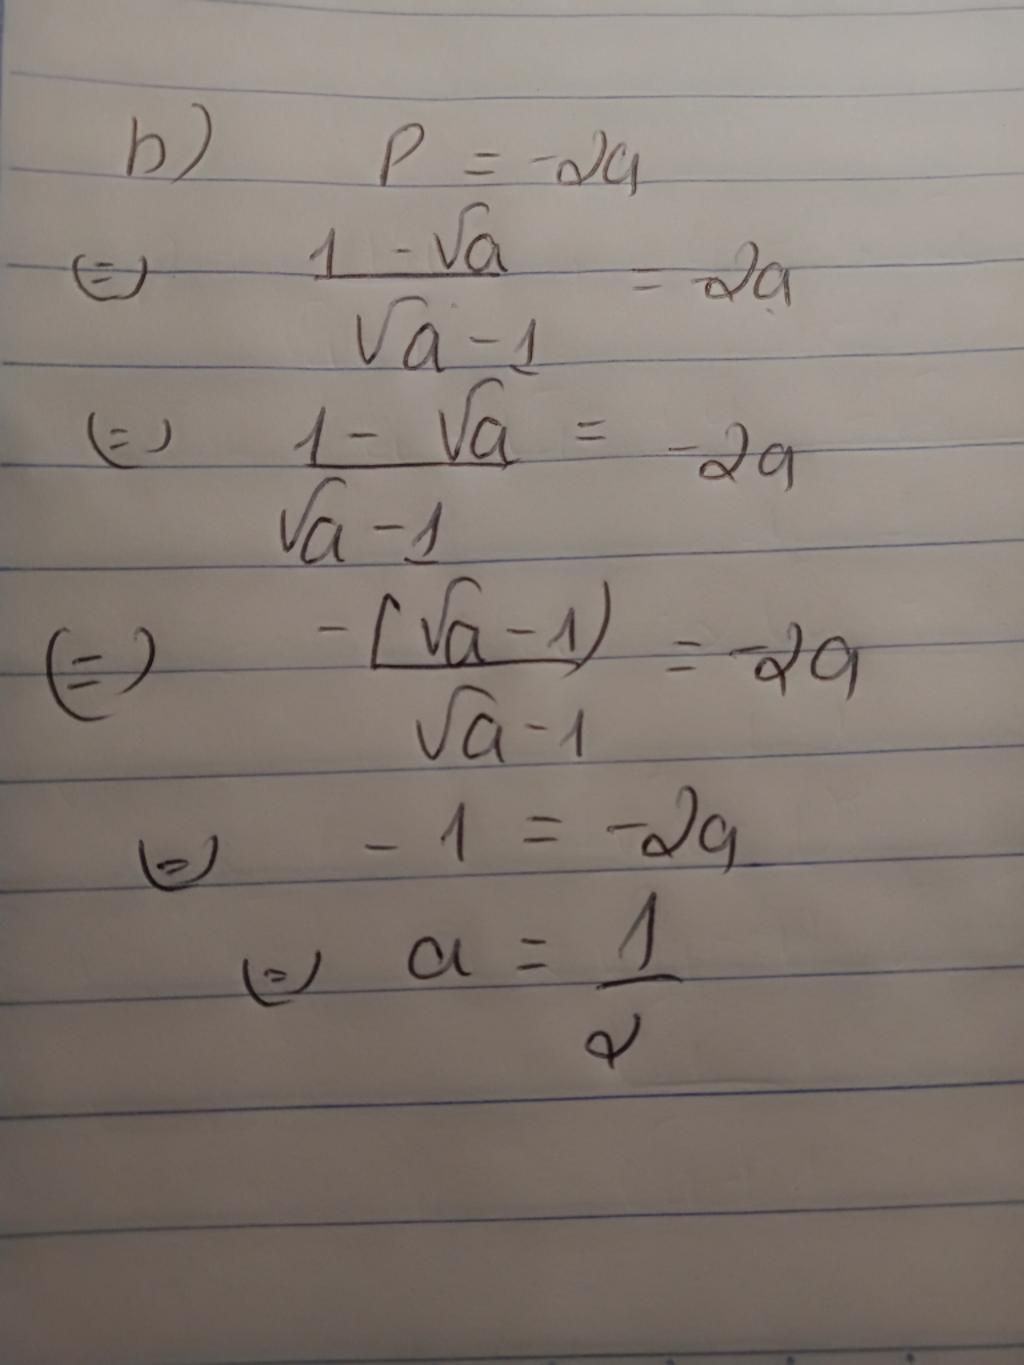 b) P = -2a
(=) 1 - √a / √a - 1 = -2a
(=) 1 - √a / √a - 1 = -2a
(=) -(√a - 1) / √a - 1 = -2a
(=) -1 = -2a
(=) a = 1 / 2